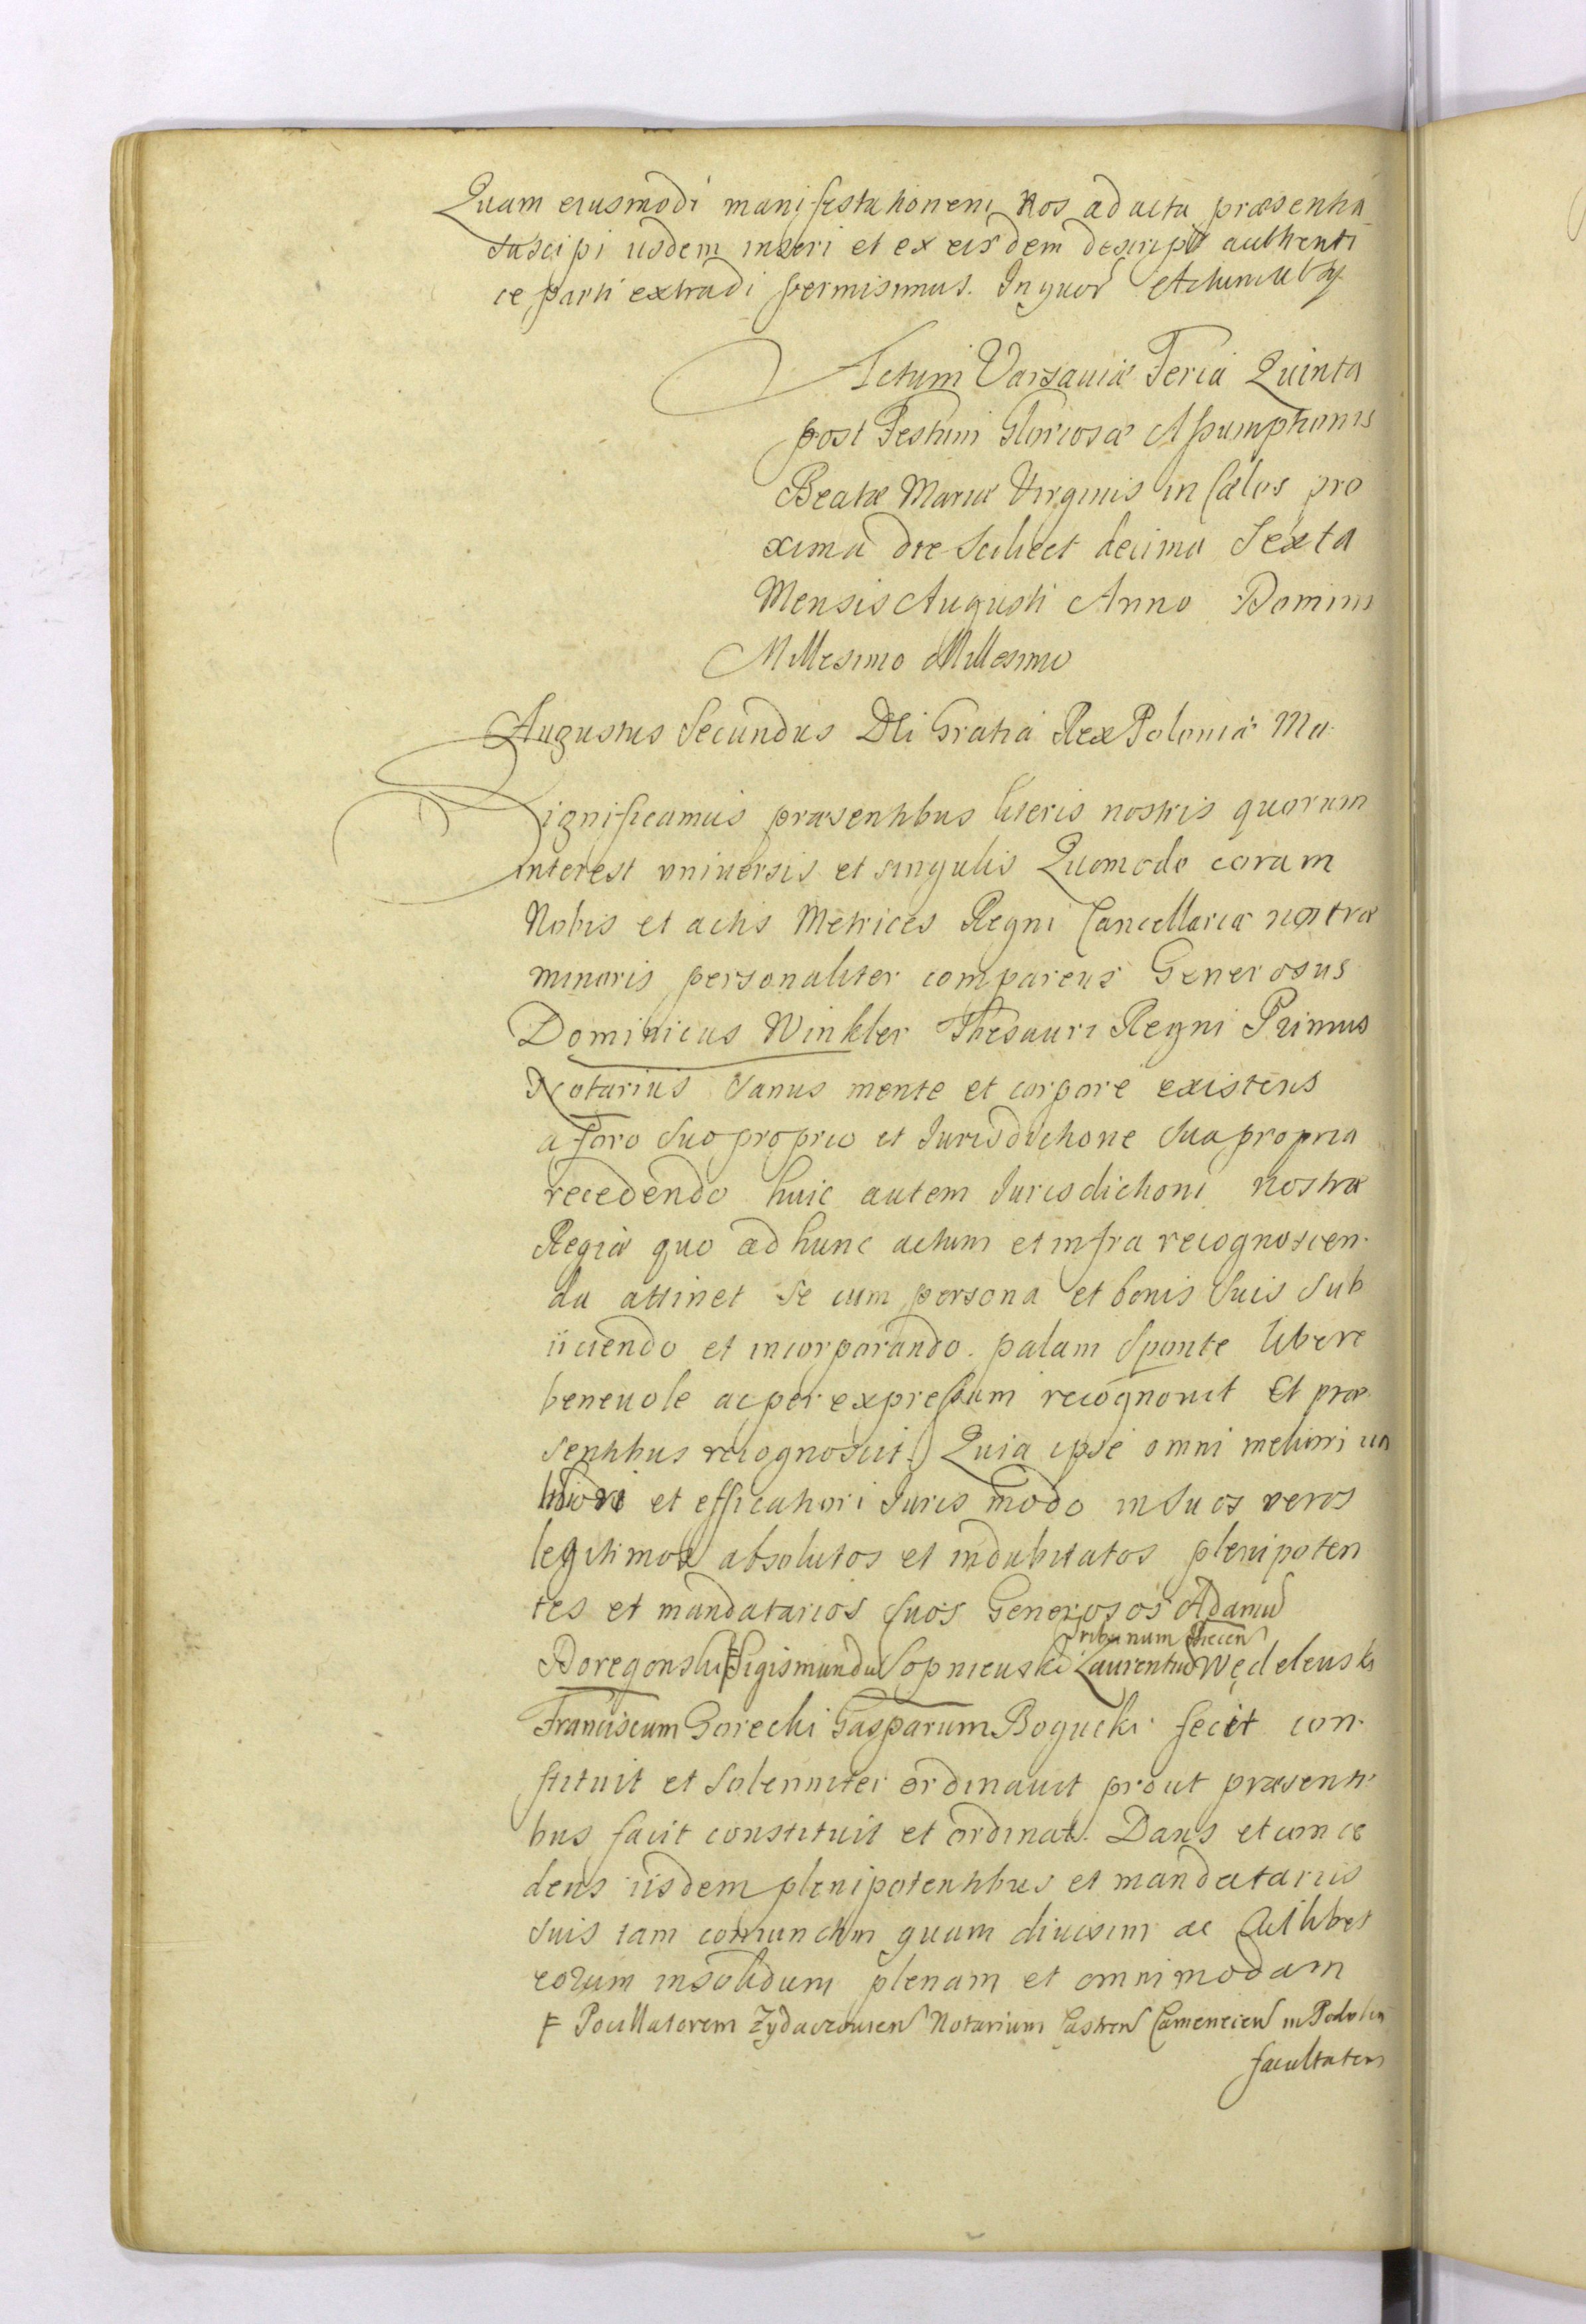 Quam eiusmodi manifestationem Nos ad acta præsentia
suscipi iisdem inseri et ex eisdem descript authenti
ce parti extradi permisimus. In quor
Actum Varsaviæ Feria Quinta
post Festum Gloriosæ Assumptionis
Beatæ Mariæ Virginis in Cælos pro
xima die Scilicet decima Sexta
Mensis Augusti Anno Domini
Millesimo Millesimo
Augustus Secundus DEi Gratia Rex Poloniæ Ma.
Significamus præsentibus literis nostris quorum
interest universis et singulis Quomodo coram
Nobis et actis Metrices Regni Cancellariæ nostræ
minoris personaliter comparens Generosus
Dominicus Winkler Thesauri Regni Primus
Notarius Sanus mente et corpore existens
a foro suo proprio et Jurisdictione sua propria
recedendo huic autem Jurisdictioni nostræ
Regiæ quo ad hunc actum et infra recognoscen.
da attinet se cum persona et bonis suis sub
iiciendo et incorporando. palam sponte libere
benevole ac per expressum recognovit Et præ
sentibus recognoscit. Quia ipse omni meliori va
lidiori et efficatiori Juris modo in suos veros
legitimos absolutos et indubitatos plenipoten
tes et mandatarios suos Generosos Adamu
Tribunum
Boregonski Sigismundu Sopnicuski Laurentiu Wędeleuski
Franciscum Gorecki Gasparum Bogucki fecit con.
stituit et Solenniter ordinavit prout præsenti
bus facit constituit et ordinat. Dans et conce
dens iisdem plenipotentibus et mandatariis
suis tam coniunctim quam divisim ac cuilibet
eorum insolidum plenam et omnimodam
F Pocillatorem Zydaczovien Notarium Castren Camenecien in Podolia
facultatem